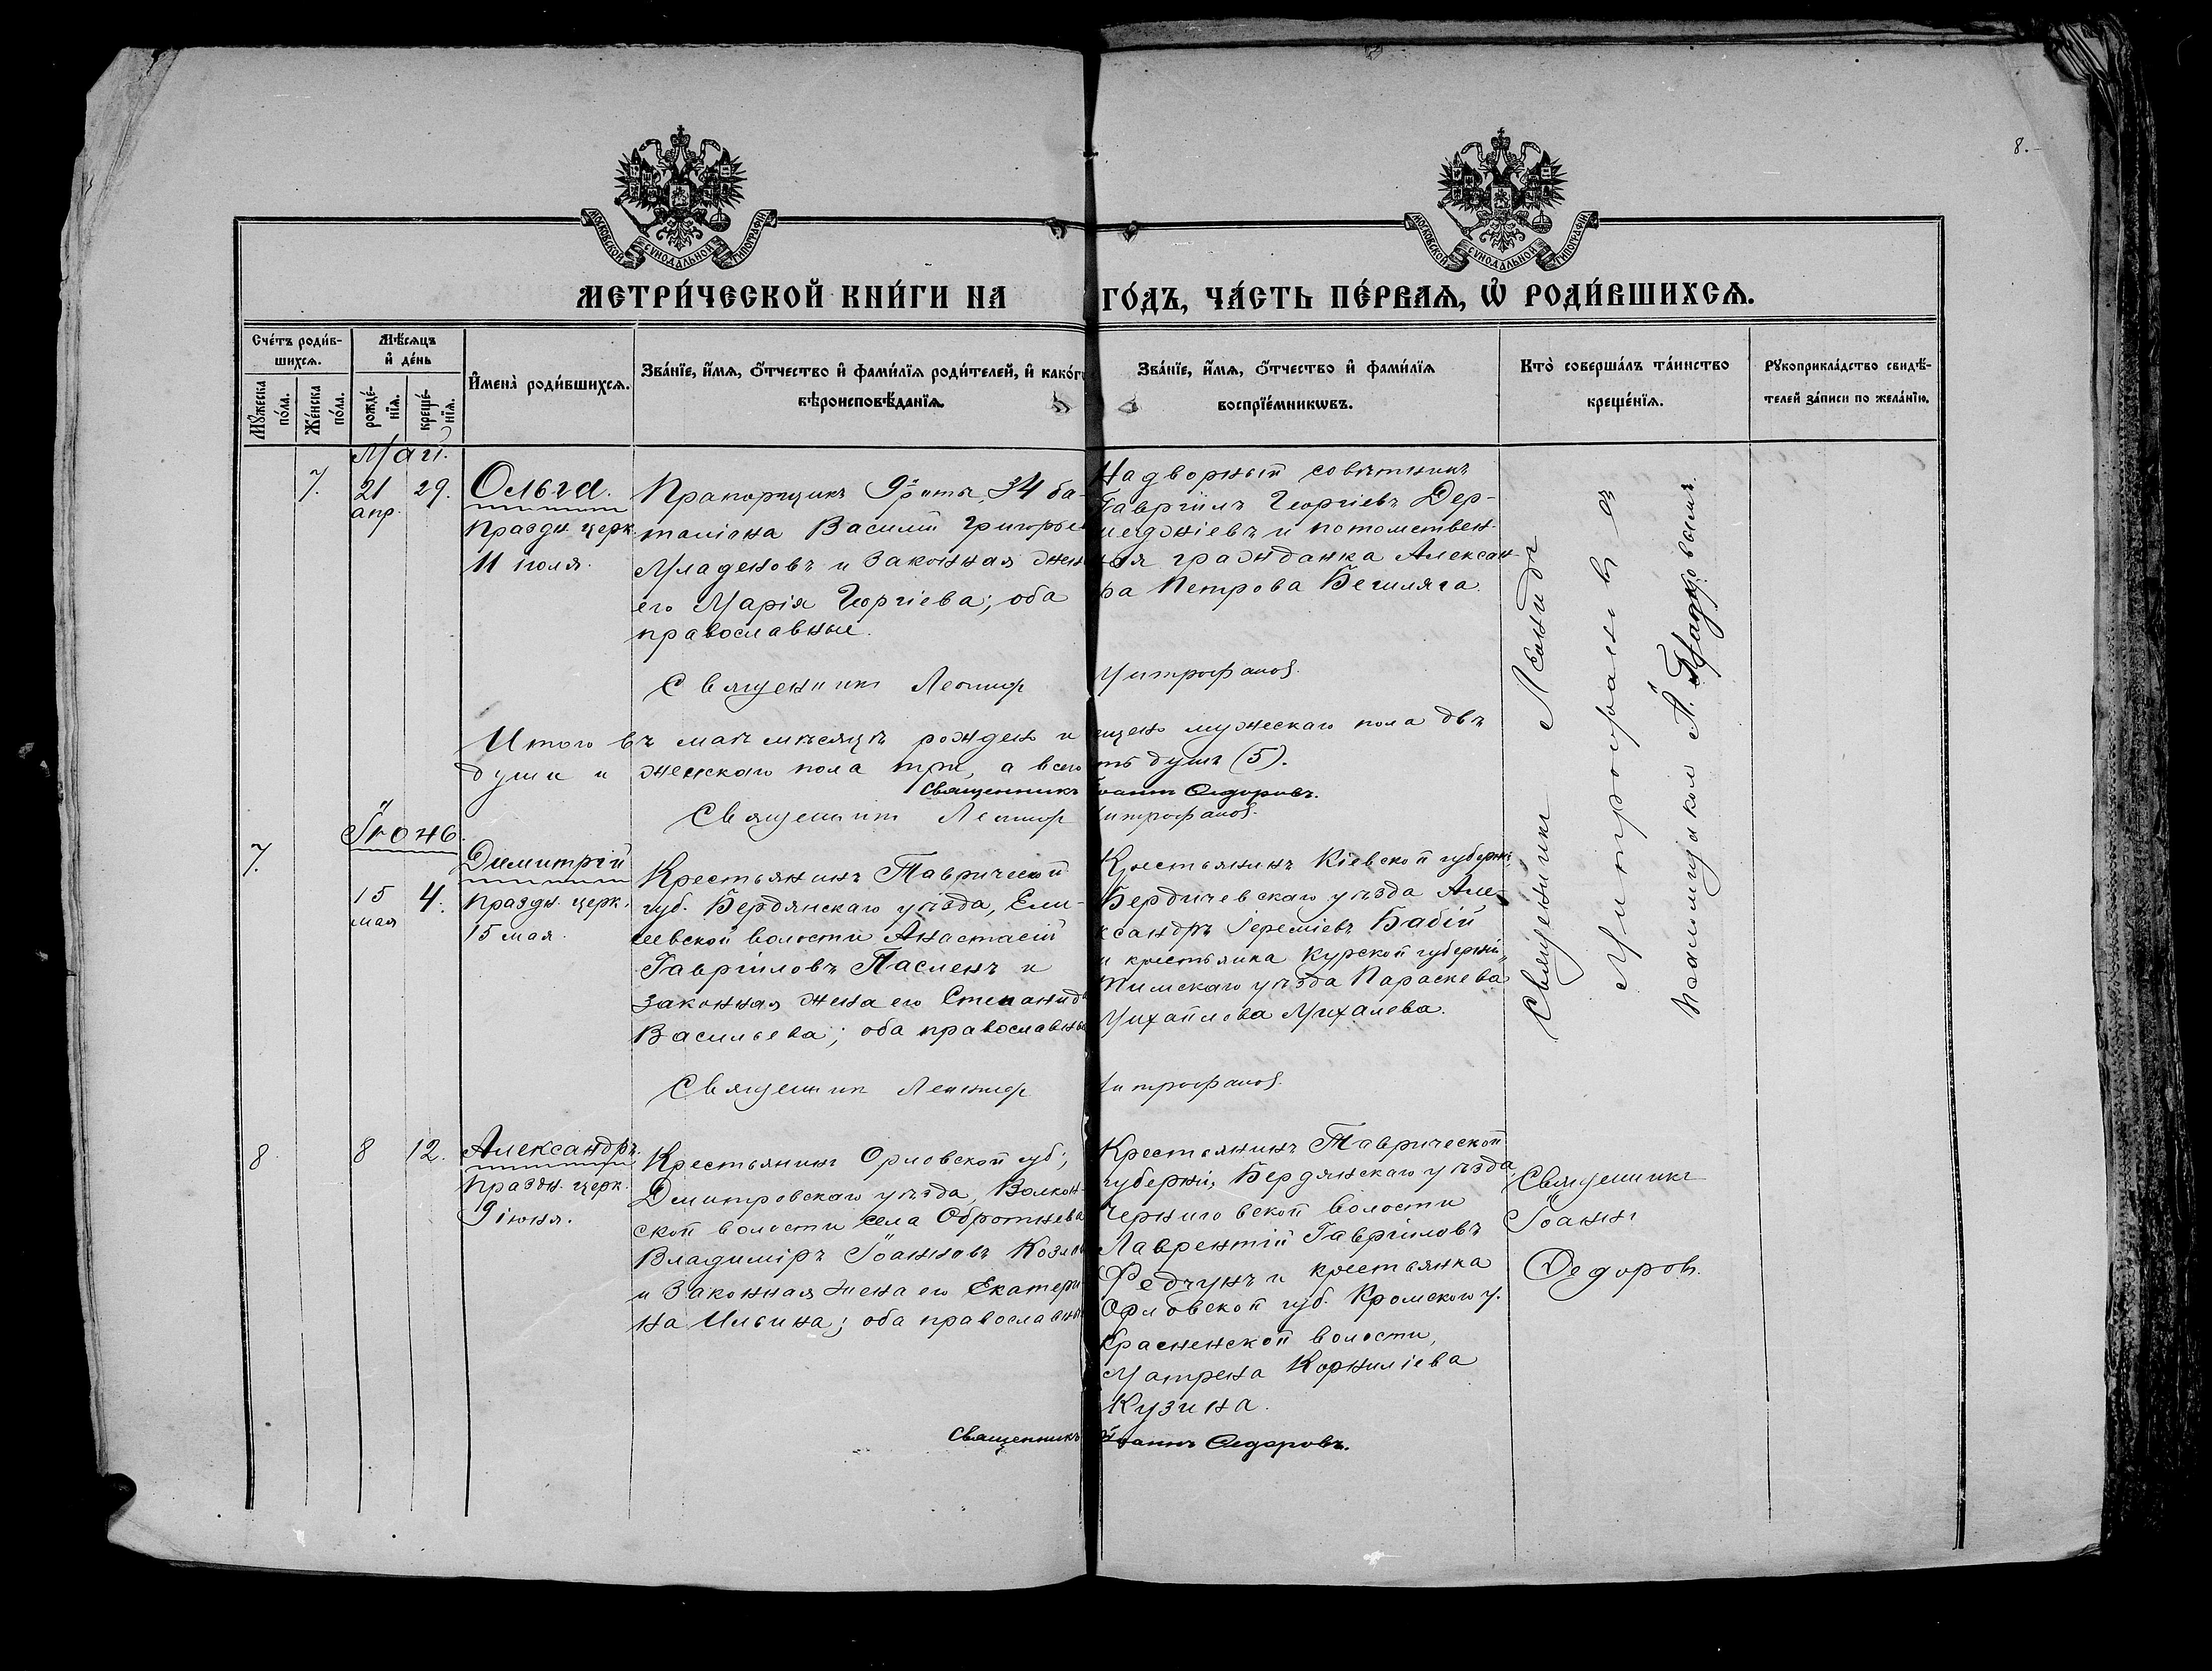 8.
МОСКОВСКОЙ СѴНОДАЛЬНОЙ ТИПОГРАФІИ
МОСКОВСКОЙ СѴНОДАЛЬНОЙ ТИПОГРАФІИ
МЕТРИ́ЧЕСКОЙ КНИ́ГИ НА ГО́ДЪ, ЧА́СТЬ ПЕ́РВАѦ, Ѡ҆ РОДИ́ВШИХСѦ.
Сче́тъ роди́в-
шихсѧ.
Мꙋ́жеска по́ла.
Же́нска по́ла.
Мѣ́сѧцъ
и҆ де́нь
рожде́-
нїѧ.
креще́-
нїѧ.
И҆мена̀ роди́вшихсѧ.
Зва́нїе, и҆́мѧ, ѻ҆́тчество и҆ фами́лїѧ роди́телей, и҆ како́г
вѣроисповѣ́данїѧ.
Зва́нїе, и҆́мѧ, ѻ҆́тчество и҆ фами́лїѧ
воспрїе́мникѡвъ.
Кто̀ соверша́лъ та́инство
креще́нїѧ.
Рꙋкоприкла́дство свидѣ́-
телей за́писи по жела́нїю.
Май.
7. 21 апр. 29. Ольга.
Праздн. церк.
11 іюля.
Прапорщикъ 9й роты 34 ба-
таліона Василій Григорье
Младеновъ и законная жен
его Марія Георгіева; оба
православные.
Надворный совѣтникъ
Гавріилъ Георгіевъ Дер-
меджіевъ и потомствен-
ная гражданка Алексан-
ра Петрова Бешляга.
Священникъ Леонид Митрофанов.
Священникъ Леонидъ
Митрофановъ съ
псаломщиком А.
Итого въ маѣ мѣсяцѣ рожден и ещено мужескаго пола двѣ
души и женскаго пола три, а всего ть душъ (5).
Священникъ Іоаннъ Ѳедоровъ.
Священник Леонид Митрофанов.
Іюнь.
7. 15 мая 4. Димитрій
Праздн. церк.
15 мая.
Крестьянинъ Таврической
губ. Бердянскаго уѣзда, Ели-
севской волости Анастасій
Гавріиловъ Пасленъ и
законная жена его Степанида
Васильева; оба православны
Крестьянинъ Кіевской губерні
Бердичевскаго уѣзда Але-
ксандръ Іереміевъ Бабій
и крестьянка Курской губерніи
Тимскаго уѣзда Параскева
Михайлова Михалева.
Священник Леонид Митрофанов.
8 8 12. Александръ.
Праздн. церк.
9 іюня.
Крестьянинъ Орловской губ;
Дмитровскаго уѣзда, Волкон-
ской волости села Обротнева
Владиміръ Іоанновъ Козло
и законная жена его Екатери
на Ильина; оба православны
Крестьянинъ Таврической
губерніи, Бердянскаго уѣзда
Черниговской волости
Лаврентій Гавріиловъ
Федчунъ и крестьянка
Орловской губ. Кромскаго у.
Красненской волости,
Матрена Корниліева
Кузина.
Священникъ
Іоаннъ
Ѳедоров.
Священникъ Іоаннъ Ѳедоровъ.